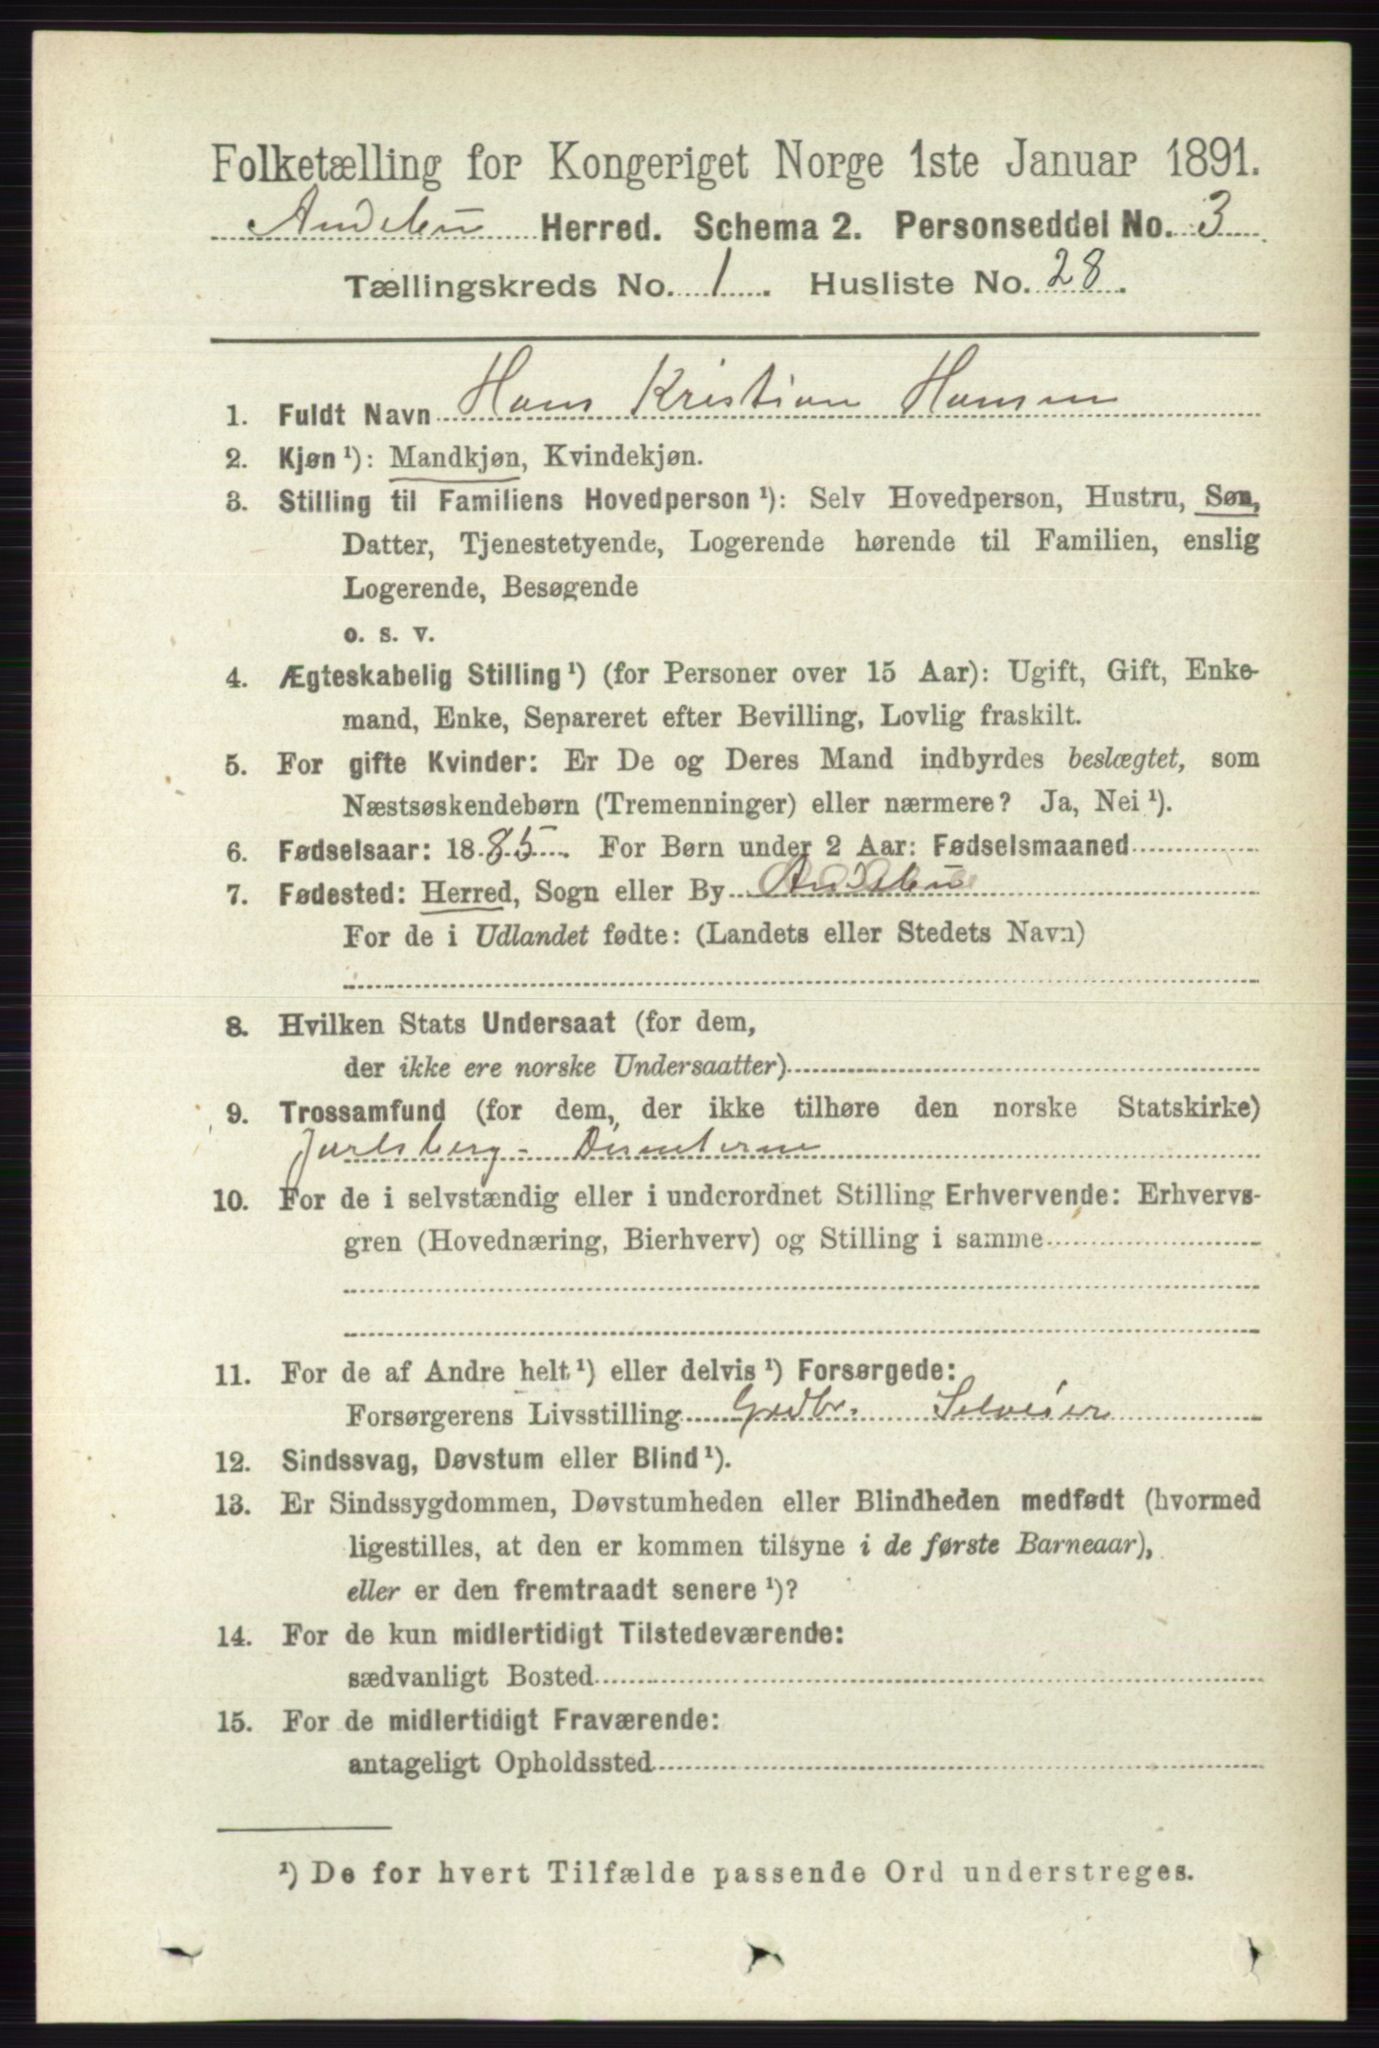 Folketælling for Kongeriget Norge 1ste Januar 1891.
Andebu Herred. Schema 2. Personseddel No. 3
Tællingskreds No. 1. Husliste No. 28.
1. Fuldt Navn Hans Kristian Hansen
2. Kjøn ¹): Mandkjøn, Kvindekjøn.
3. Stilling til Familiens Hovedperson ¹): Selv Hovedperson, Hustru, Søn,
Datter, Tjenestetyende, Logerende hørende til Familien, enslig
Logerende, Besøgende
o. s. v.
4. Ægteskabelig Stilling ¹) (for Personer over 15 Aar): Ugift, Gift, Enke-
mand, Enke, Separeret efter Bevilling, Lovlig fraskilt.
5. For gifte Kvinder: Er De og Deres Mand indbyrdes beslægtet, som
Næstsøskendebørn (Tremenninger) eller nærmere? Ja, Nei ¹).
6. Fødselsaar: 1885. For Børn under 2 Aar: Fødselsmaaned
7. Fødested: Herred, Sogn eller By Andebu
For de i Udlandet fødte: (Landets eller Stedets Navn)
8. Hvilken Stats Undersaat (for dem,
der ikke ere norske Undersaatter)
9. Trossamfund (for dem, der ikke tilhøre den norske Statskirke)
Jarlsberg - Disenterne
10. For de i selvstændig eller i underordnet Stilling Erhvervende: Erhvervs-
gren (Hovednæring, Bierhverv) og Stilling i samme
11. For de af Andre helt ¹) eller delvis ¹) Forsørgede:
Forsørgerens Livsstilling Grdbr. Selveier
12. Sindssvag, Døvstum eller Blind ¹).
13. Er Sindssygdommen, Døvstumheden eller Blindheden medfødt (hvormed
ligestilles, at den er kommen tilsyne i de første Barneaar),
eller er den fremtraadt senere ¹)?
14. For de kun midlertidigt Tilstedeværende:
sædvanligt Bosted
15. For de midlertidigt Fraværende:
antageligt Opholdssted
¹) De for hvert Tilfælde passende Ord understreges.